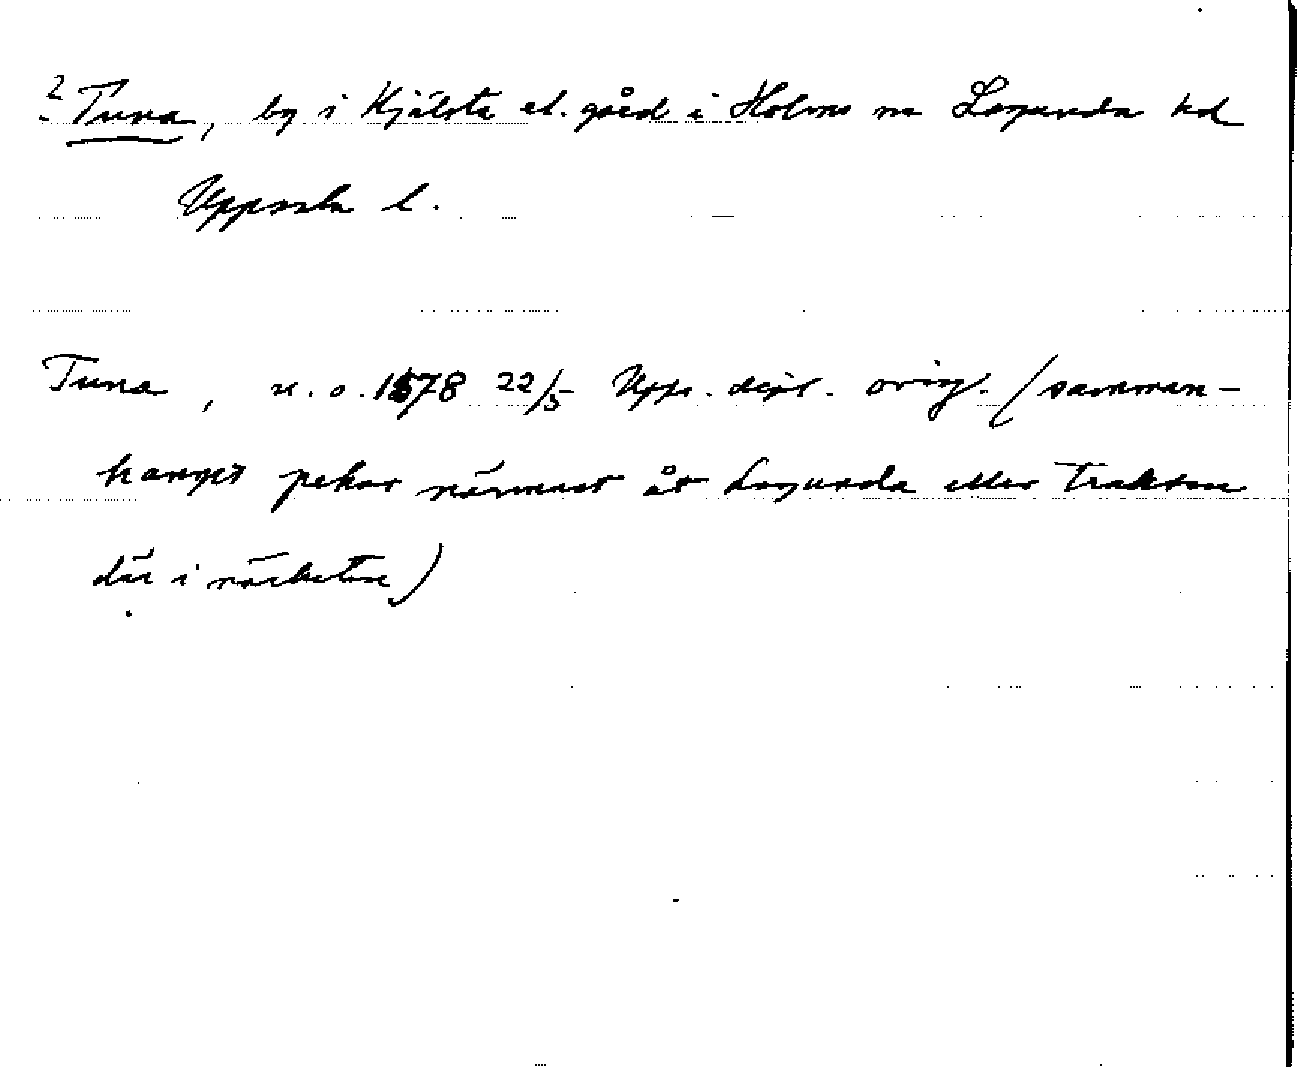 ? Tuna, by i Hjälsta el. gård i Holms sn Lagunda hd
Uppsala l.
Tuna, u. o. 1578 22/5 Upps. dipl. orig. (samman-
hanget pekar närmast åt Lagunda eller trakten
där i närheten)